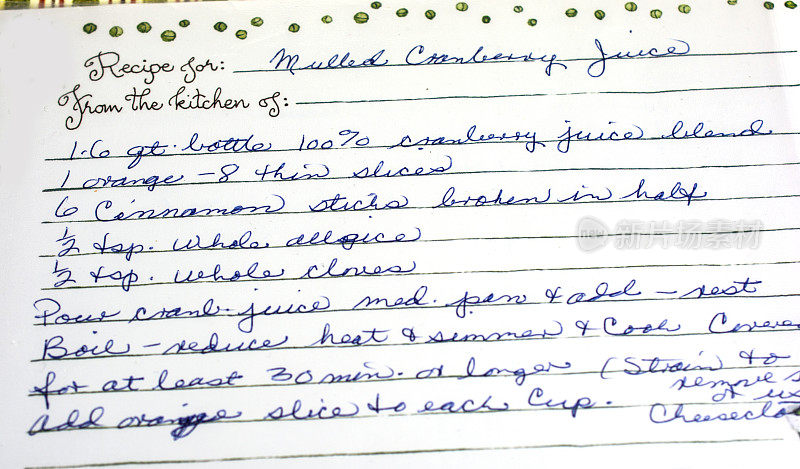 Recipe for: Mulled Cranberry Juice
From the kitchen of:
1.6 qt. bottle 100% cranberry juice blend
1 orange - 8 thin slices
6 Cinnamon sticks broken in half
1/2 tsp. whole allspice
1/2 tsp. whole cloves
Pour cranb. juice med. pan & add - rest
Boil - reduce heat & simmer & Cook Covere
for at least 30 min. or longer (Strain to
remove s
add orange slice to each Cup. or us
Cheeseclo
新片场素材